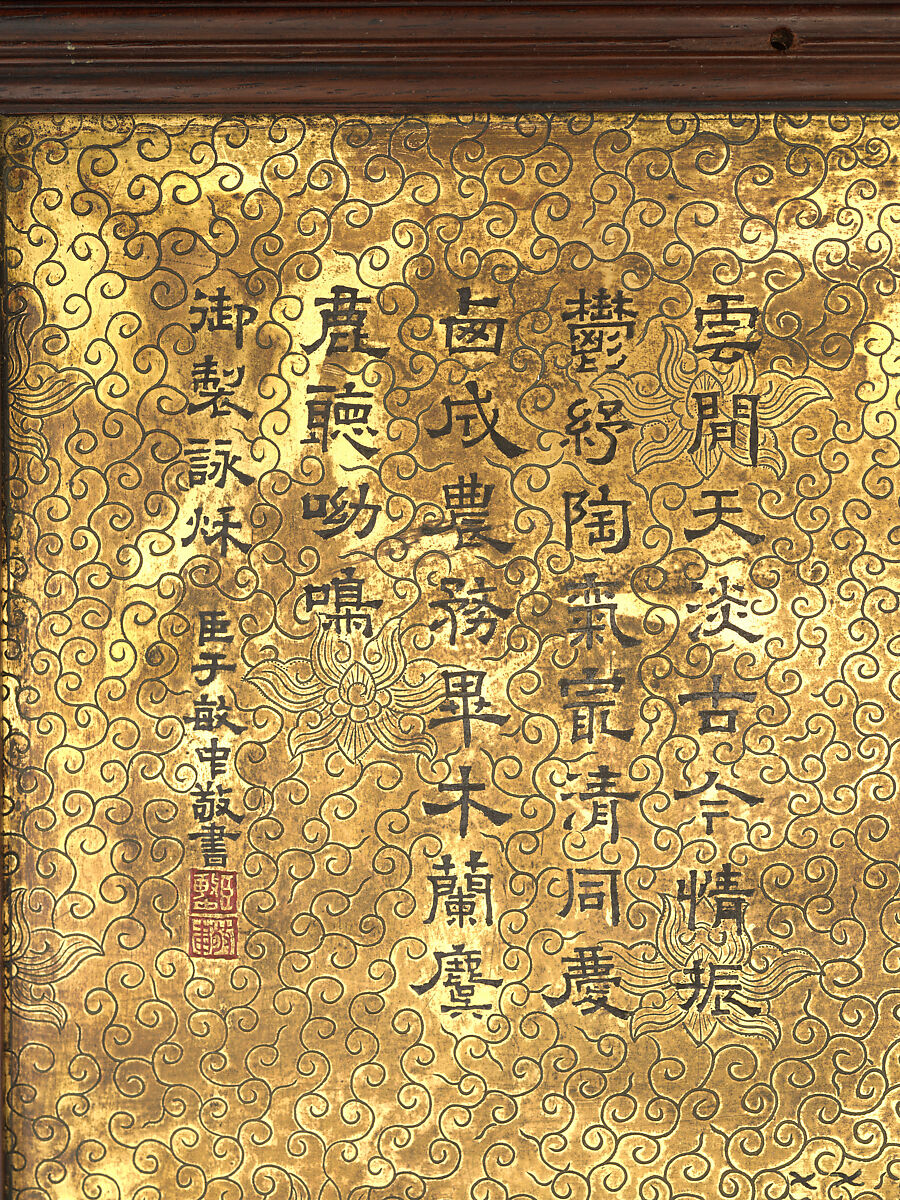 雲閒天淡古今情振
鬱紓陶氣㝡清同慶
卥成農務畢木蘭麌
鹿聽呦鳴
御製詠秋 臣于敏中敬書